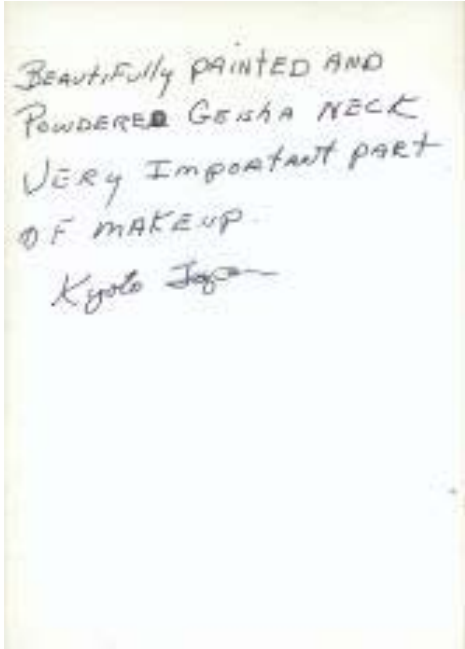 BEAutiFully PAINTED AND
POWDERED GEISHA NECK
VERy ImpoRtANT pARt
OF mAKEUP.
Kyoto Japan